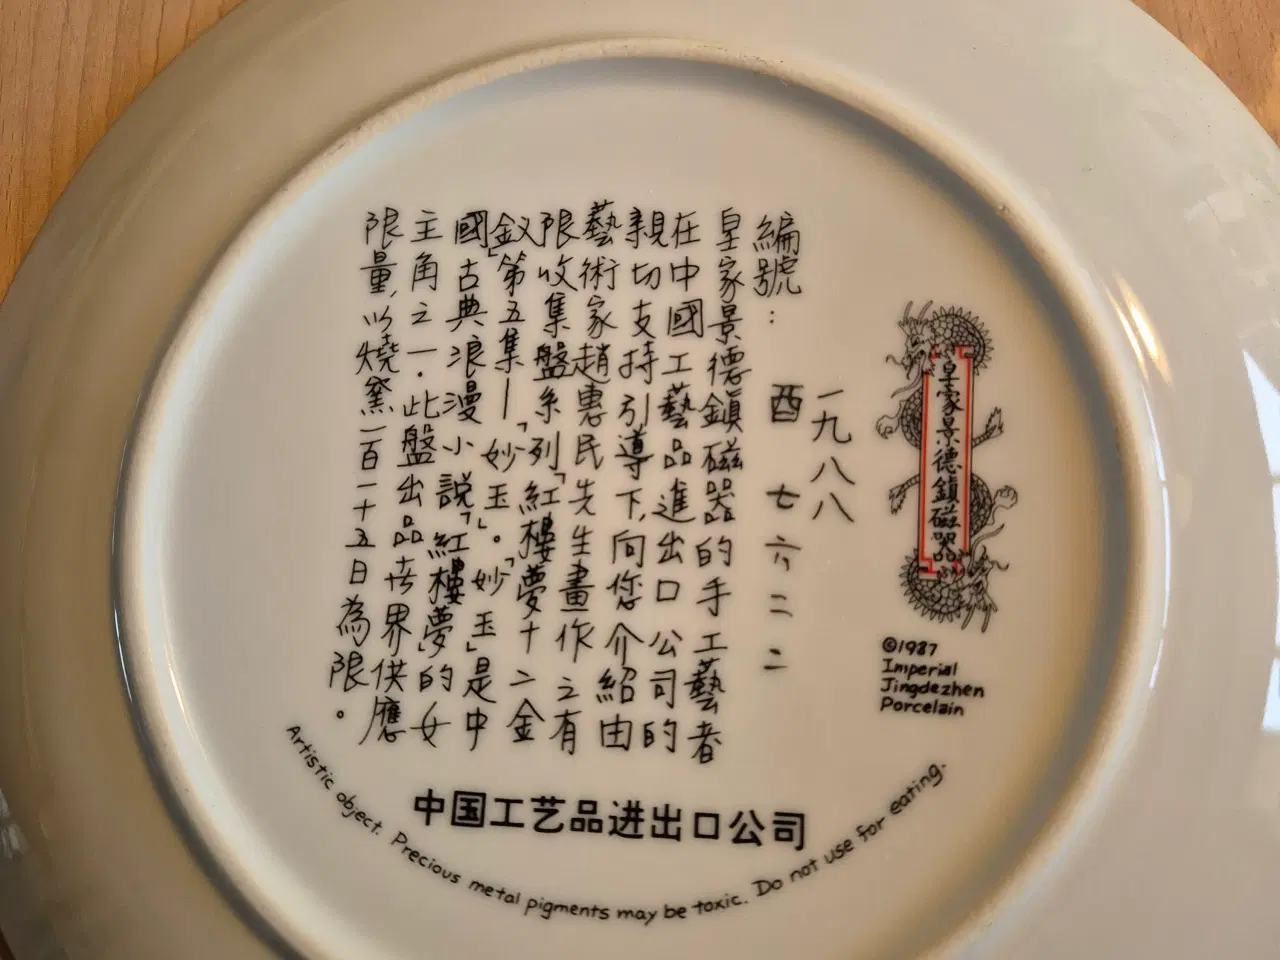 皇家景德鎮磁器
©1987
Imperial
Jingdezhen
Porcelain
一九八八
編號：酉七六二二
皇家景德鎮磁器的手工藝者
在中國工藝品進出口公司的
親切支持引導下，向您介紹由
藝術家趙惠民先生畫作之有
限收集盤系列「紅樓夢十二金
釵」第五集—「妙玉」。「妙玉」是中
國古典浪漫小說「紅樓夢」的女
主角之一．此盤出品世界供應
限量，以燒窯一百一十五日為限。
中国工艺品进出口公司
Artistic object. Precious metal pigments may be toxic. Do not use for eating.